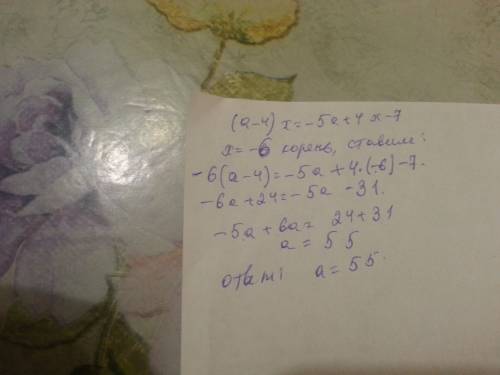 (a-4)x=-5a+4x-7
x=-6 корень, ставим:
-6(a-4)=-5a+4·(-6)-7.
-6a+24=-5a-31.
-5a+6a=24+31
a=55
ответ: a=55.